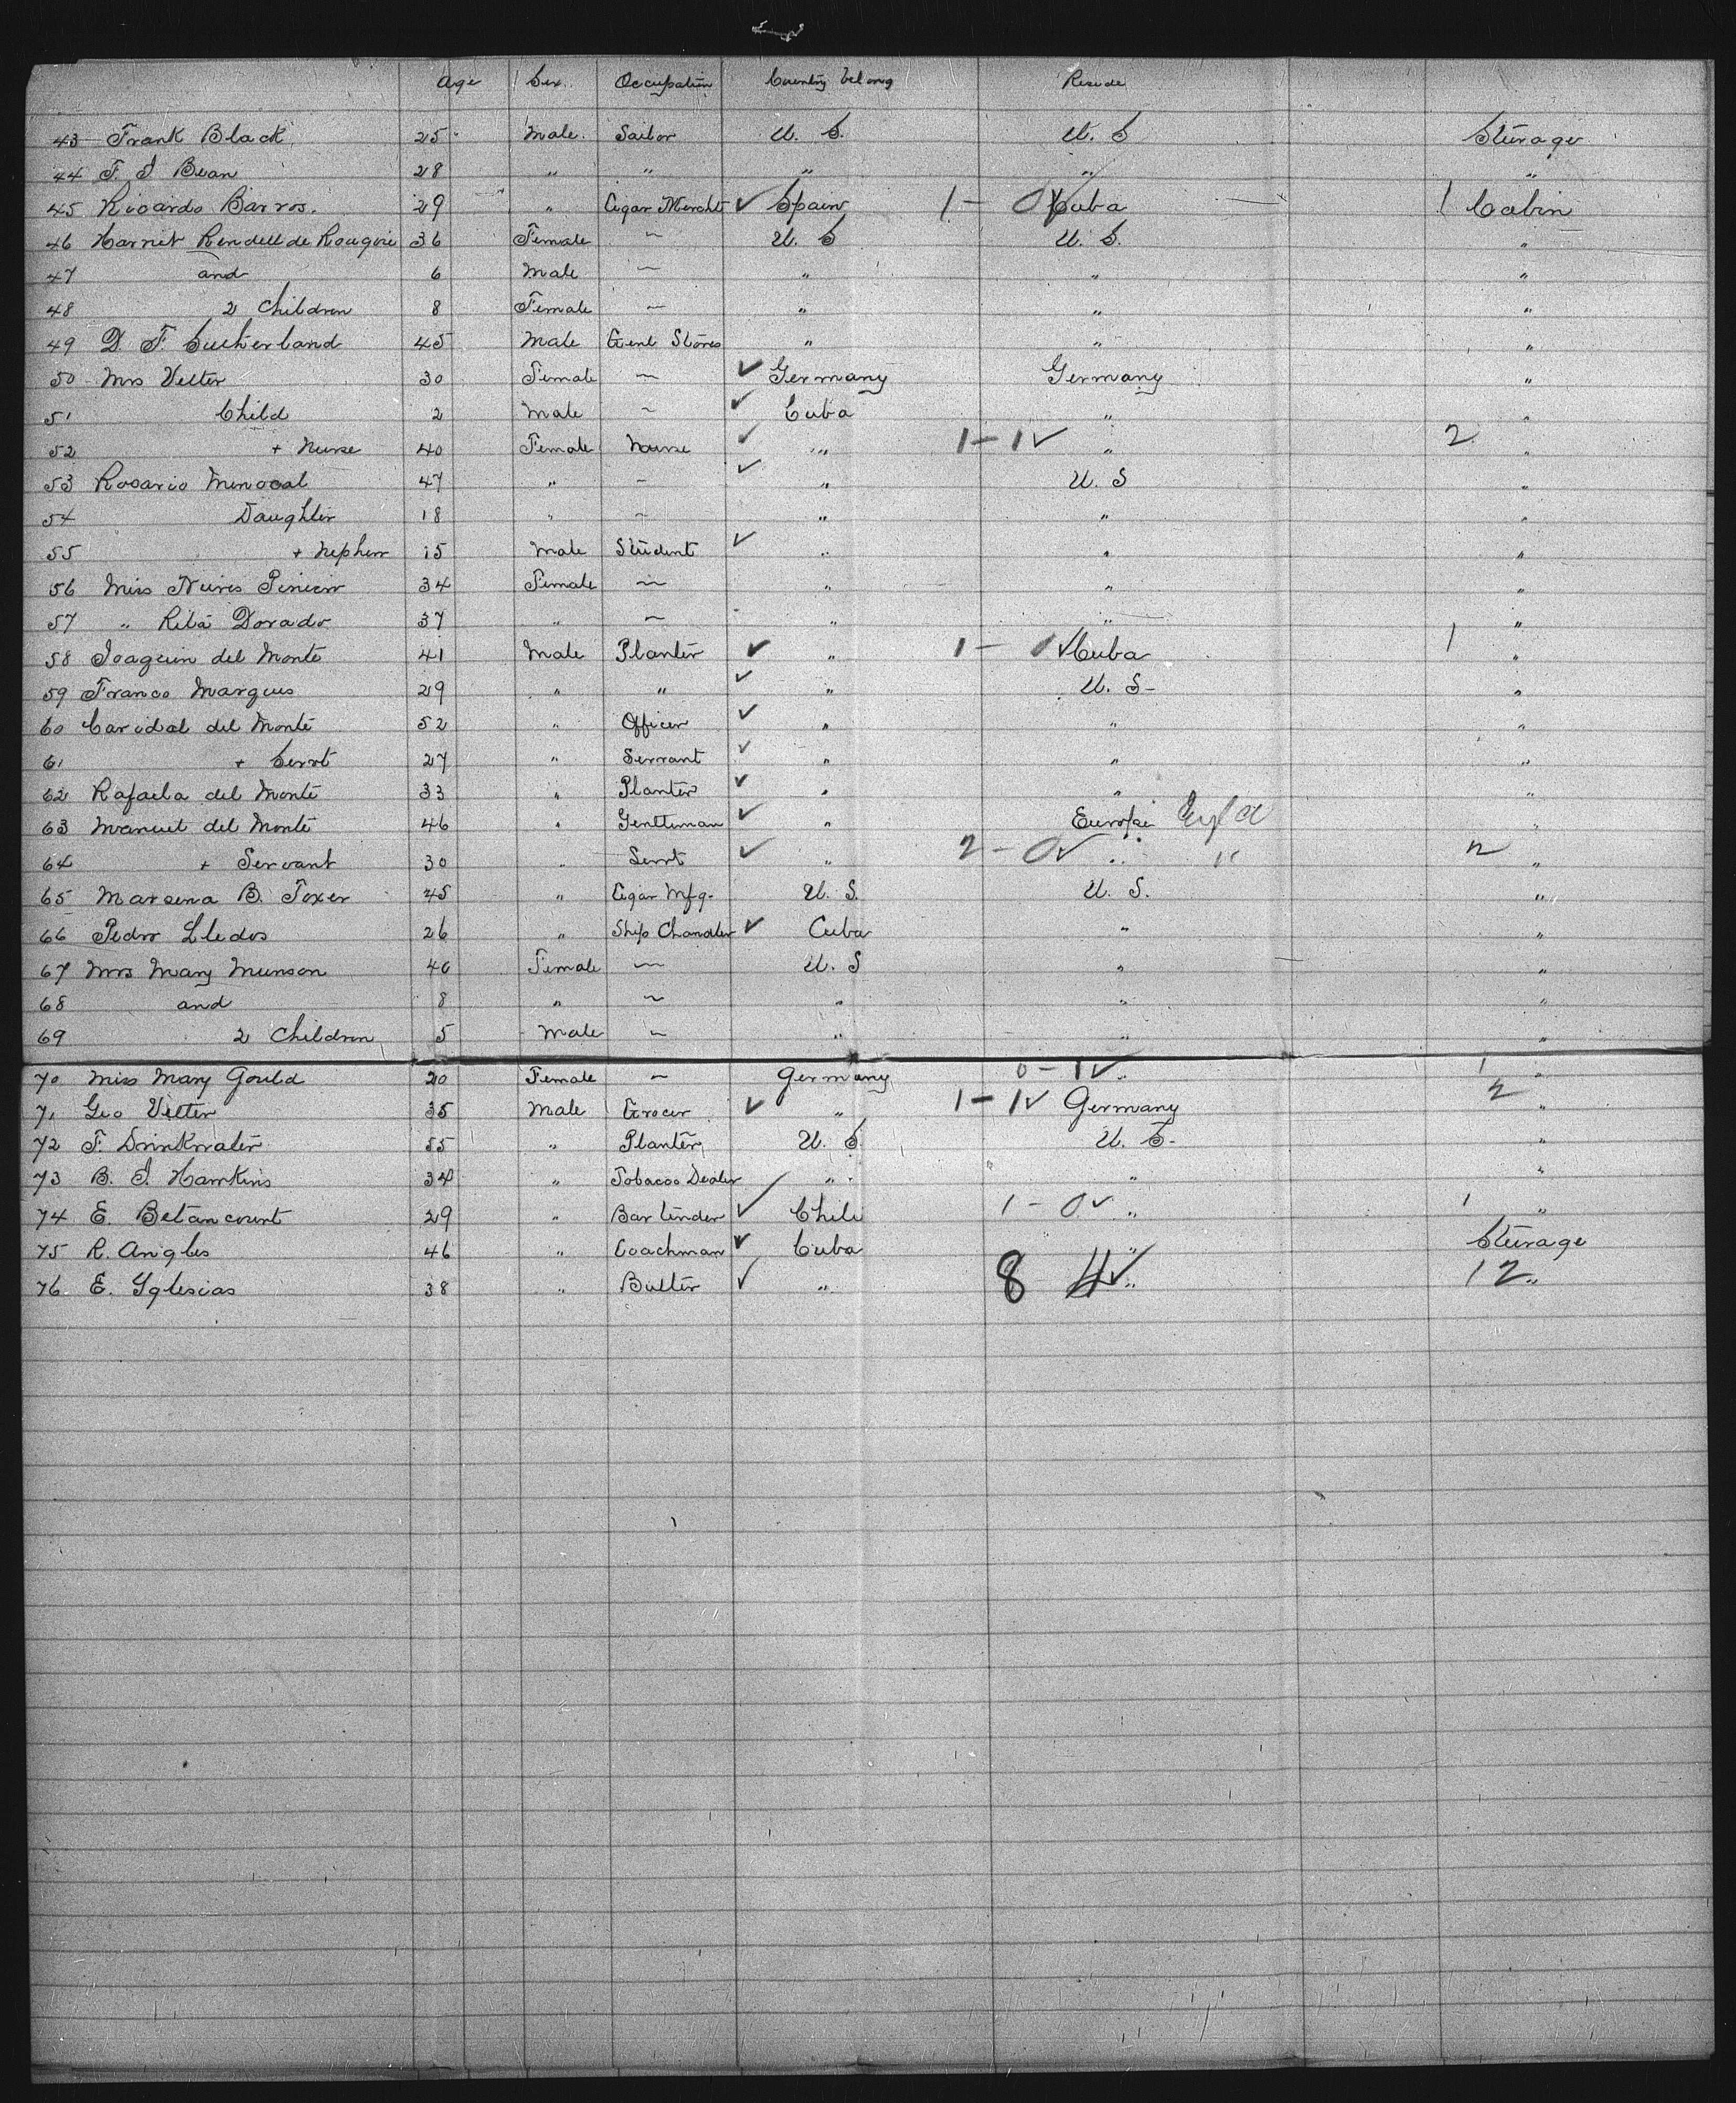 Age Sex. Occupation Country belong Reside
43 Frank Black 25 Male. Sailor U. S. U. S Steerage
44 F. J Bean 28 " " " " "
45 Ricardo Barros. 29 " Cigar Mercht ✓ Spain 1 - 0✓ Cuba 1 Cabin
46 Harriet Rendell de 36 Female — U. S U. S. "
47 and 6 Male — " " "
48 2 Children 8 Female — " " "
49 D. F. Sutherland 45 Male Genl Stores " " "
50 Mrs Vetter 30 Female — ✓ Germany Germany "
51 Child 2 Male — ✓ Cuba " "
52 + Nurse 40 Female Nurse ✓ " 1 - 1 ✓ " 2 "
53 Rosario Menocal 47 " — ✓ " U. S "
54 Daughter 18 " — " " "
55 + Nephew 15 Male Student ✓ " " "
56 Miss 34 Female — " " "
57 " Dorado 37 " — " " "
58 Joaquin del Monte 41 Male Planter ✓ " 1 - 0✓ Cuba 1 "
59 Franco Marques 29 " " ✓ " U. S - "
60 Caridad del Monte 52 " Officer ✓ " " "
61 + Servt 27 " Servant ✓ " " "
62 Rafaela del Monte 33 " Planter ✓ " " "
63 Manuel del Monte 46 " Gentleman ✓ " Europe "
64 + Servant 30 " Servt ✓ " 2 - 0✓ " " 2 "
65 B. 45 " Cigar Mfg. U. S. U. S. "
66 Pedro Lledos 26 " Ship Chandler ✓ Cuba " "
67 Mrs Mary Munson 40 Female — U. S " "
68 and 8 " — " " "
69 2 Children 5 Male — " " "
70 Miss Mary Gould 20 Female — Germany 0 - 1 ✓ " 1 "
71 Geo Vetter 35 Male Grocer ✓ " 1 - 1 ✓ Germany 2 "
72 F. Drinkwater 55 " Planter U. S. U. S. "
73 B. J. Hawkins 34 " Tobacco Dealer " " "
74 E. Betancourt 29 " Bar tender ✓ Chile 1 - 0 ✓ " 1 "
75 R. Angles 46 " Coachman ✓ Cuba " Steerage
76. E. Yglesias 38 " Butler ✓ " 8 4 ✓ " 12 "